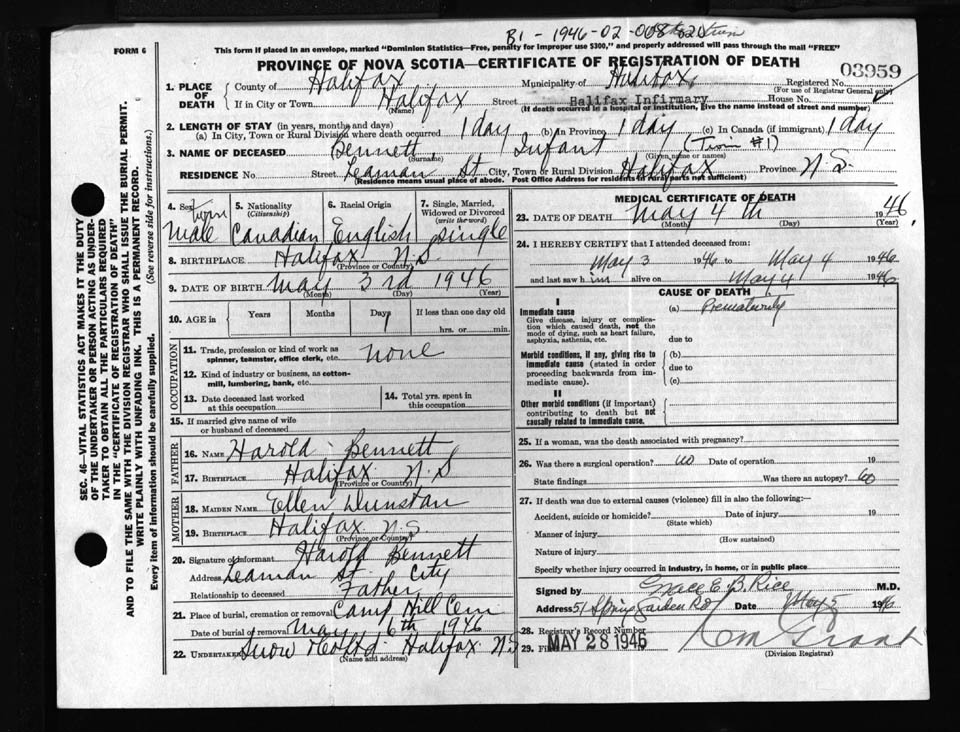 B1 - 1946-02-008
FORM 6
This form if placed in an envelope, marked "Dominion Statistics—Free, penalty for improper use $300," and properly addressed will pass through the mail "FREE"
PROVINCE OF NOVA SCOTIA—CERTIFICATE OF REGISTRATION OF DEATH
03959
1. PLACE OF DEATH
County of Halifax Municipality of Halifax Registered No.
(For use of Registrar General only)
If in City or Town Halifax Street Halifax Infirmary House No.
(Name) (If death occurred in a hospital or institution, give the name instead of street and number)
2. LENGTH OF STAY (in years, months and days)
(a) In City, Town or Rural Division where death occurred 1 day (b) in Province 1 day (c) In Canada (if immigrant) 1 day
3. NAME OF DECEASED Bennett, Infant (Twin #1)
(Surname) (Given name or names)
RESIDENCE No. Street Leaman St City, Town or Rural Division Halifax Province N.S.
(Residence means usual place of abode. Post Office Address for residents in rural parts not sufficient)
4. Sex Twin Male
5. Nationality (Citizenship) Canadian
6. Racial Origin English
7. Single, Married, Widowed or Divorced (write the word) Single
8. BIRTHPLACE Halifax N.S.
(Province or Country)
9. DATE OF BIRTH May 3rd 1946
(Month) (Day) (Year)
10. AGE in Years Months Days 1 If less than one day old
hrs. or min.
OCCUPATION
11. Trade, profession or kind of work as spinner, teamster, office clerk, etc. none
12. Kind of industry or business, as cotton-mill, lumbering, bank, etc.
13. Date deceased last worked at this occupation
14. Total yrs. spent in this occupation
15. If married give name of wife or husband of deceased
FATHER
16. Name Harold Bennett
17. Birthplace Halifax N.S
(Province or Country)
MOTHER
18. Maiden Name Ellen Dunstan
19. Birthplace Halifax N.S
(Province or Country)
20. Signature of informant Harold Bennett
Address Leaman St. City
Relationship to deceased Father
21. Place of burial, cremation or removal Camp Hill Cem
Date of burial or removal May 6th 1946
22. UNDERTAKER Snow Halifax N.S
(Name and address)
MEDICAL CERTIFICATE OF DEATH
23. DATE OF DEATH May 4th 1946
(Month) (Day) (Year)
24. I HEREBY CERTIFY that I attended deceased from:
May 3 1946 to May 4 1946
and last saw him alive on May 4 1946
CAUSE OF DEATH
I
Immediate cause
Give disease, injury or complication which caused death, not the mode of dying, such as heart failure, asphyxia, asthenia, etc.
(a) Prematurity
due to
Morbid conditions, if any, giving rise to immediate cause (stated in order proceeding backwards from immediate cause).
(b)
due to
(c)
II
Other morbid conditions (if important) contributing to death but not causally related to immediate cause.
25. If a woman, was the death associated with pregnancy?
26. Was there a surgical operation? no Date of operation 19
State findings Was there an autopsy? no
27. If death was due to external causes (violence) fill in also the following:—
Accident, suicide or homicide? Date of injury 19
(State which)
Manner of injury
(How sustained)
Nature of injury
Specify whether injury occurred in industry, in home, or in public place
Signed by Grace E. B. Rice M.D.
Address 51 Spring Garden Rd Date May 5 1946
28. Registrar's Record Number
29. MAY 28 1946
(Division Registrar)
SEC. 46—VITAL STATISTICS ACT MAKES IT THE DUTY
OF THE UNDERTAKER OR PERSON ACTING AS UNDER-
TAKER TO OBTAIN ALL THE PARTICULARS REQUIRED
IN THE "CERTIFICATE OF REGISTRATION OF DEATH"
AND TO FILE THE SAME WITH THE DIVISION REGISTRAR WHO SHALL ISSUE THE BURIAL PERMIT.
WRITE PLAINLY WITH UNFADING INK. THIS IS A PERMANENT RECORD.
Every item of information should be carefully supplied. (See reverse side for instructions.)